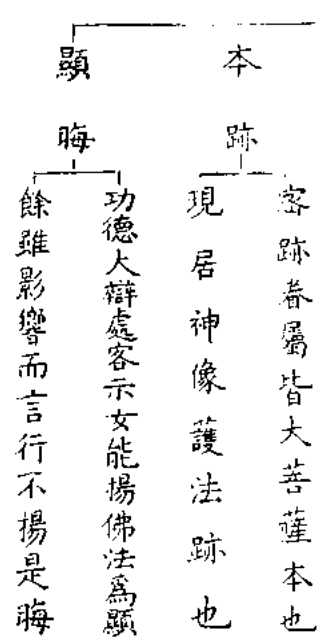 本跡
密跡眷屬皆大菩薩本也
現居神像護法跡也
顯晦
功德大辯處客示女能揚佛法爲顯
餘雖影響而言行不揚是晦